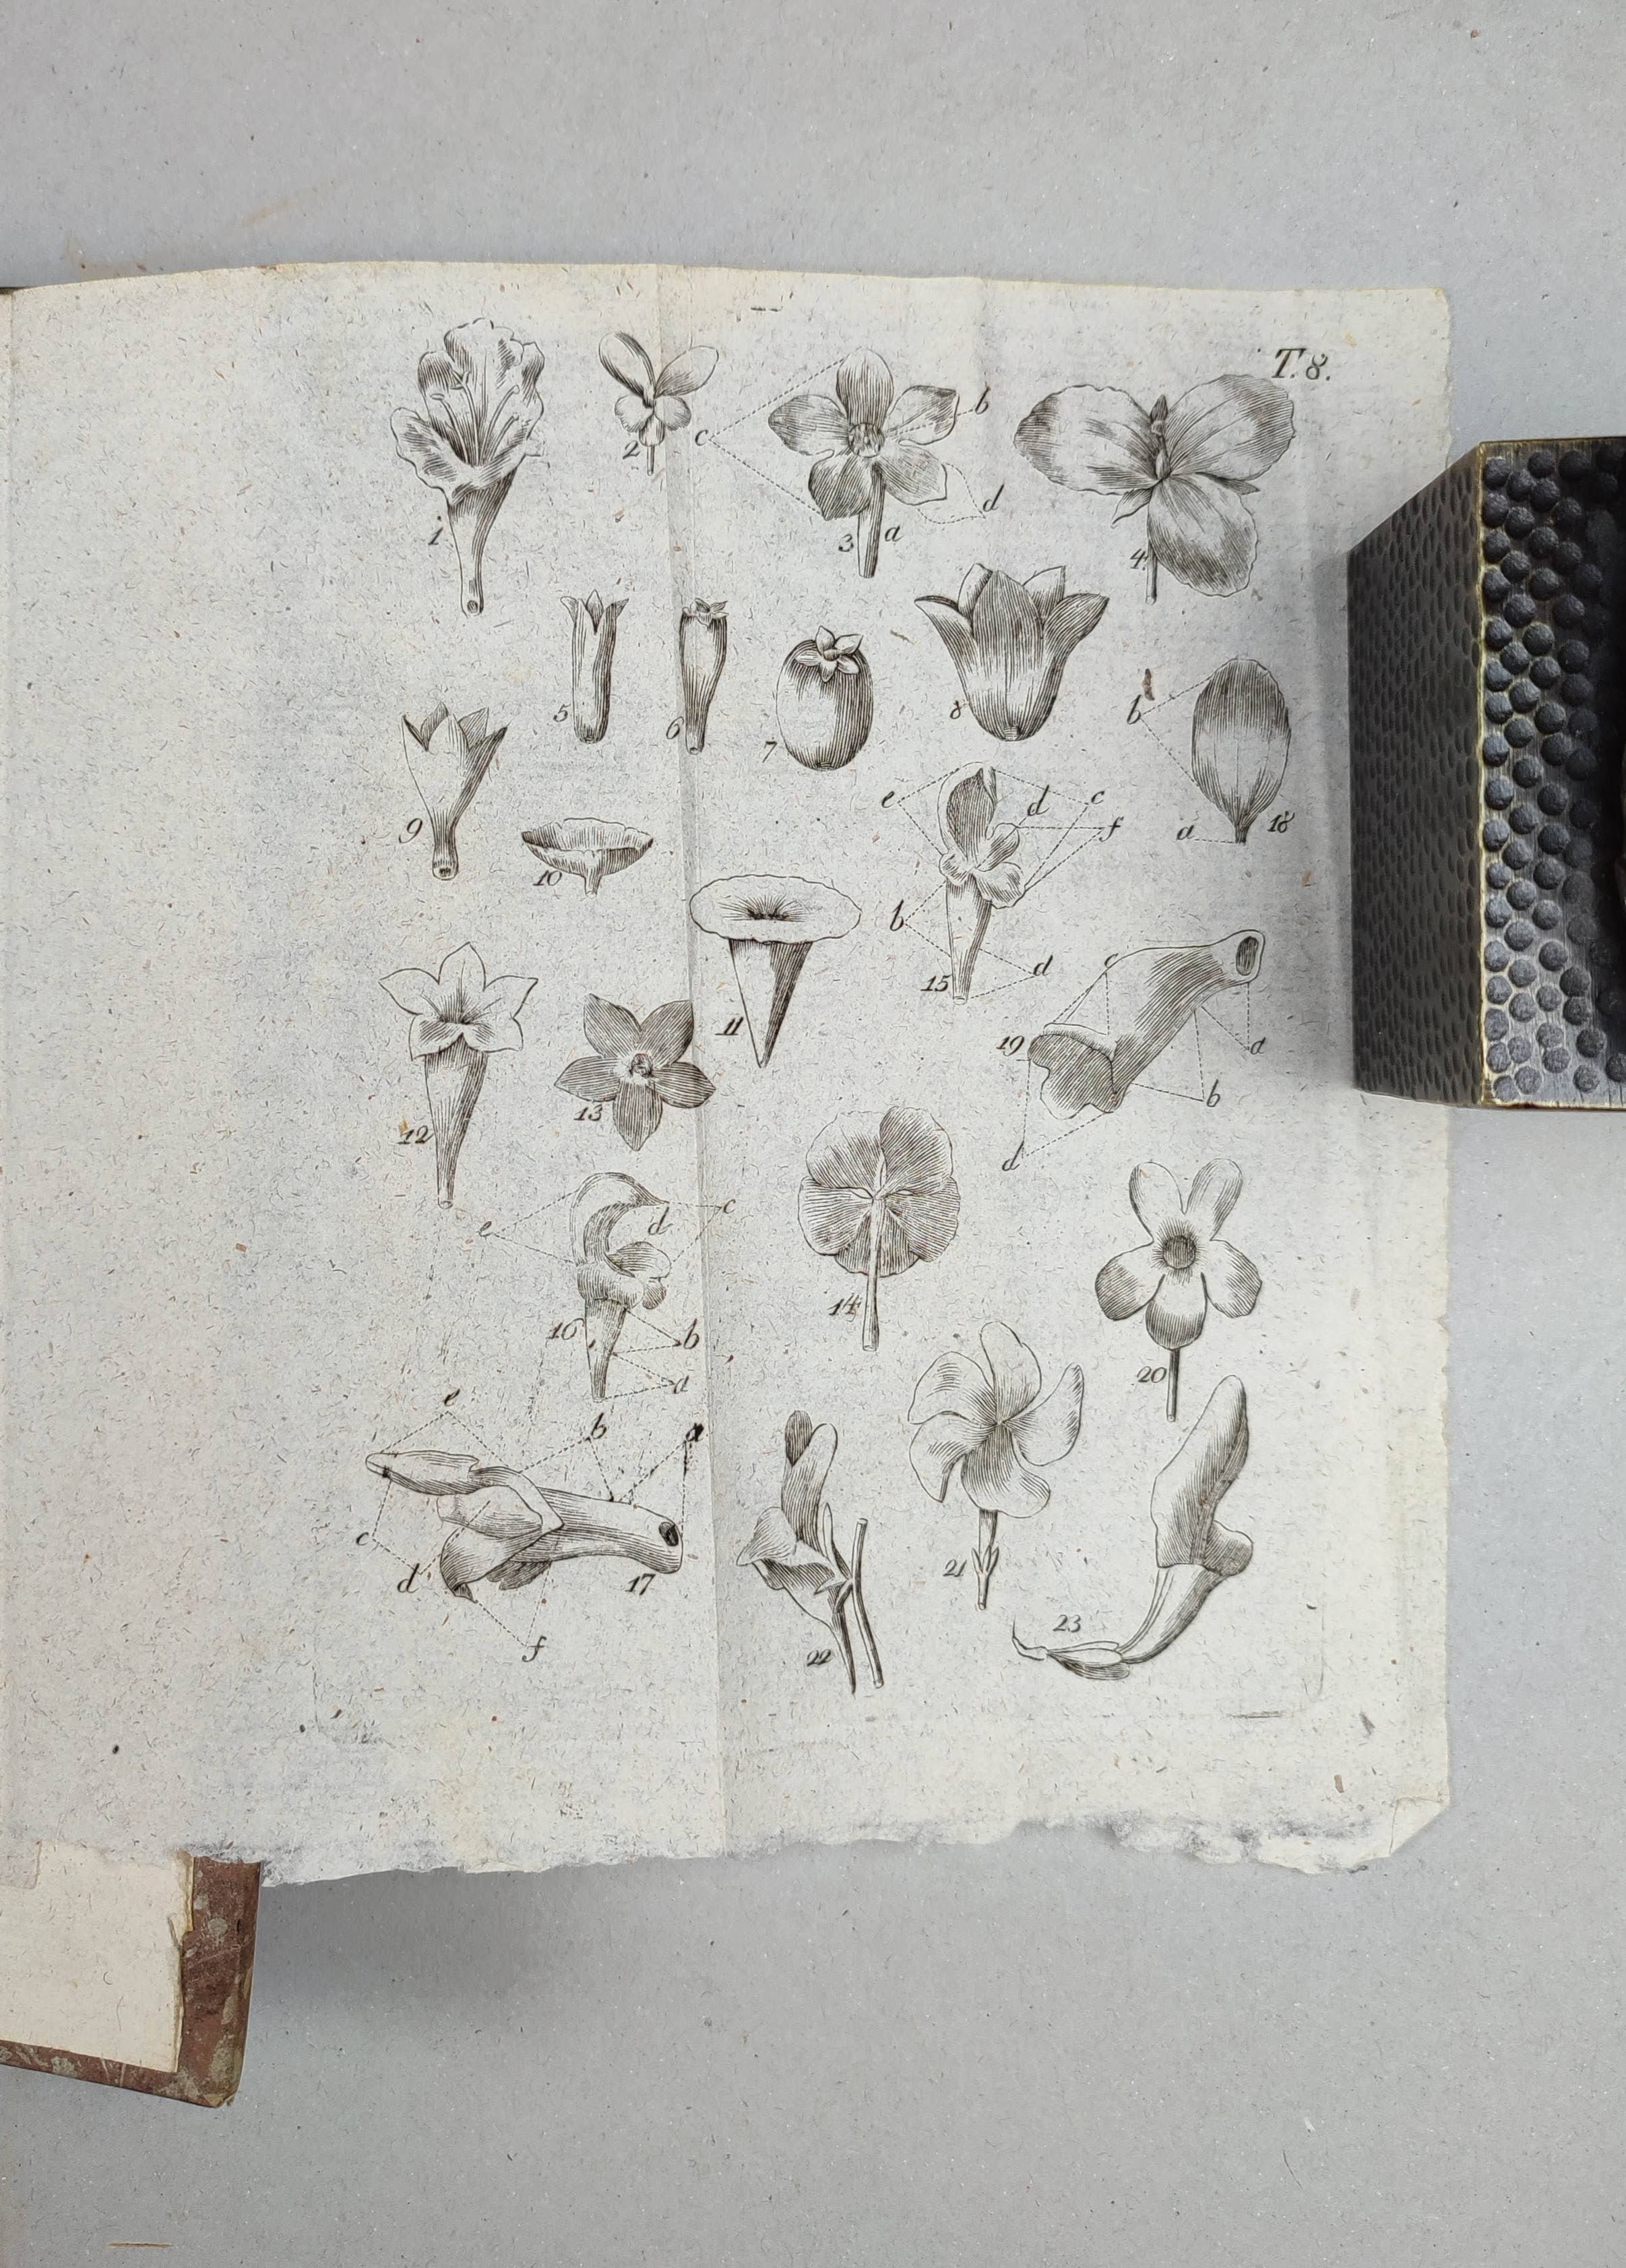 T. 8.
c b
2
d
1 3 a
4
5 6 8 b
7
9 e d c
f a 18
10
b
15 d c
11
19 a
13 b
12
d
e d c
14
16 b
20
a
e b a
c
d 17 21
23
f 22